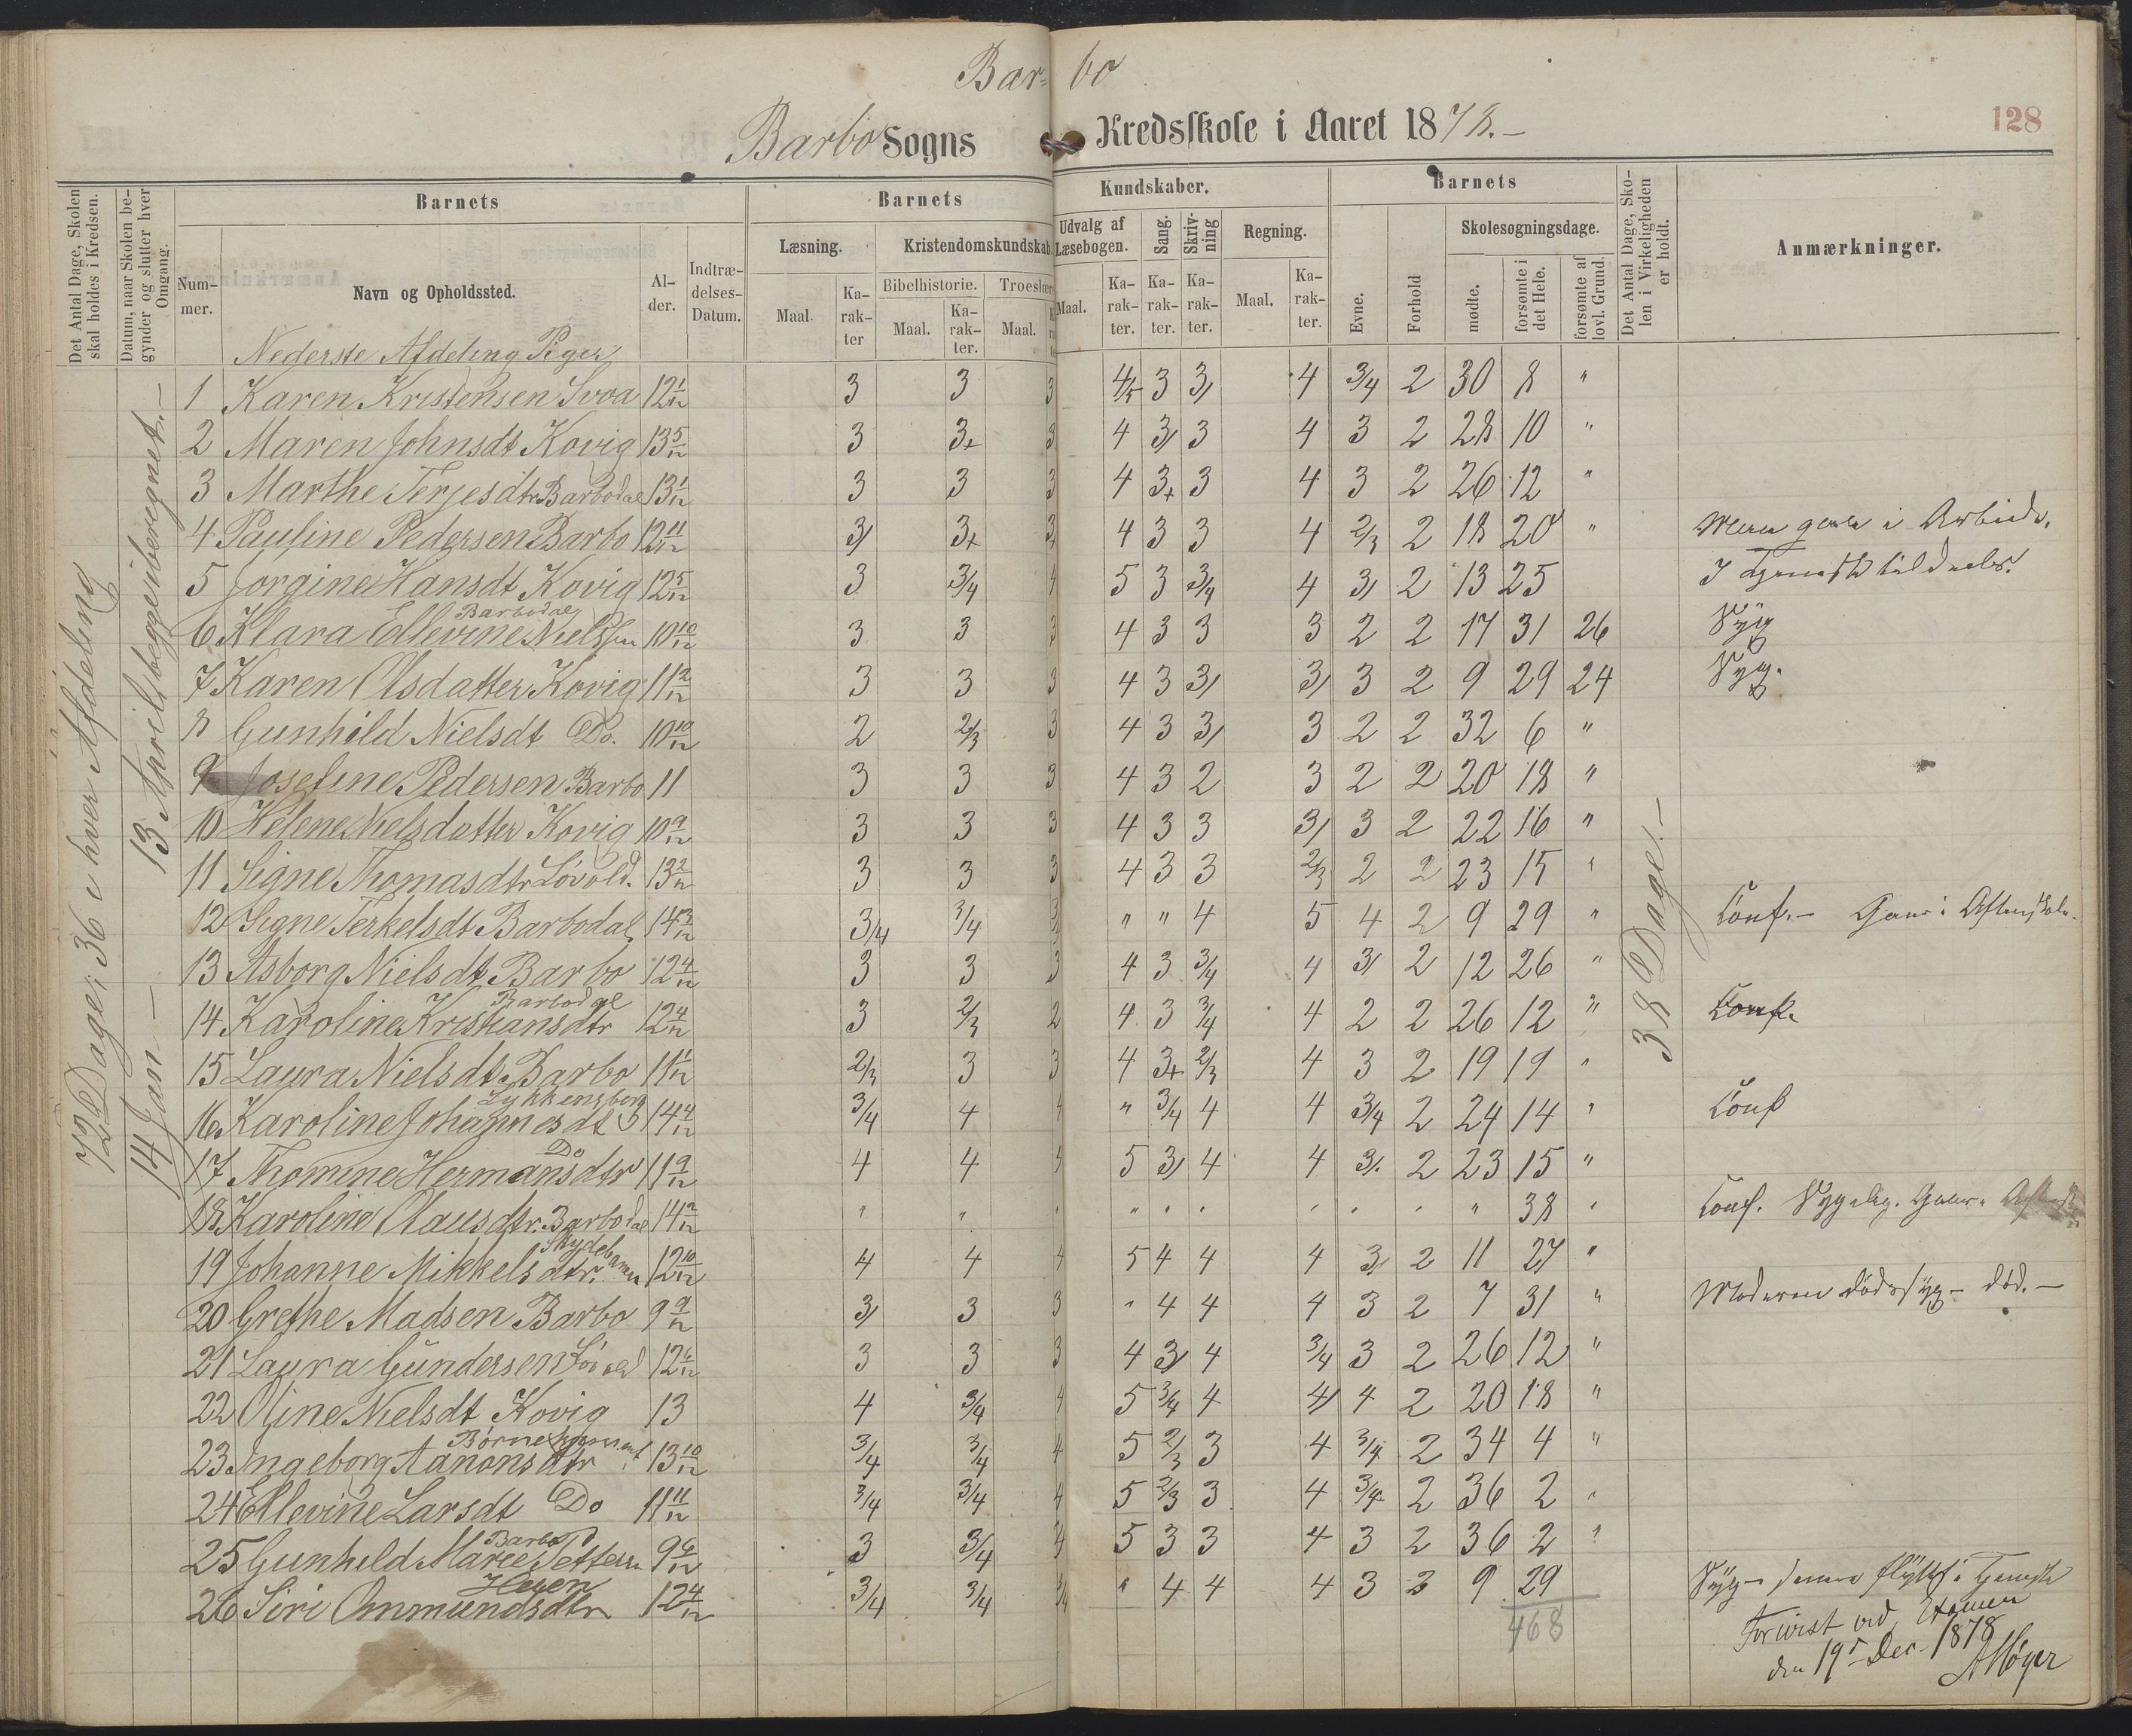 Bar- bo
128
Barbo Sogns Kredsskole i Aaret 1878.-
Det Antal Dage, Skolen skal holdes i Kredsen.
Datum, naar Skolen begynder og slutter hver Omgang.
Barnets
Nummer.
Navn og Opholdssted.
Alder.
Indtrædelses-Datum.
Barnets Kundskaber.
Læsning. Maal. Karakter
Kristendomskundskab
Bibelhistorie. Maal. Karakter.
Troeslære Maal.
Udvalg af Læsebogen. Maal. Karakter.
Sang. Karakter.
Skrivning Karakter.
Regning. Maal. Karakter.
Barnets
Evne. Forhold
Skolesøgningsdage.
mødte. forsømte i det Hele. forsømte af lovl. Grund.
Det Antal Dage, Skolen i Virkeligheden er holdt.
Anmærkninger.
72 Dage; 36 i hver Afdeling
14 Jan – 13 April beggeiberegnet.–
38 Dage.–
Nederste Afdeling Piger
1 Karen Kristensen Svoa 12 1/12 3 3 3 4/5 3 3/ 4 3/4 2 30 8 "
2 Maren Johnsdt Kovig 13 5/12 3 3+ 3 4 3/ 3 4 3 2 28 10 "
3 Marthe Terjesdtr Barbodal 13 1/12 3 3 3 4 3+ 3 4 3 2 26 12 "
4 Pauline Pedersen Barbo 12 11/12 3/ 3+ 3+ 4 3 3 4 2/3 2 18 20 " i Arbeide.
5 Jorgine Hansdt Kovig 12 5/12 3 3/4 4 5 3 3/4 4 3/ 2 13 25 I tildeels.
6 Klara Ellevine Nielssen Barbodal 10 10/12 3 3 3 4 3 3 3 2 2 17 31 26 Syg
7 Karen Olsdatter Kovig 11 2/12 3 3 3 4 3 3/ 3/ 3 2 9 29 24 Syg.
8 Gunhild Nielsdt Do. 10 10/12 2 2/3 3 4 3 3/ 3 2 2 32 6 "
9 Josefine Pedersen Barbo 11 3 3 3 4 3 2 3 2 2 20 18 "
10 Helene Nelsdatter Kovig 10 9/12 3 3 3 4 3 3 3/ 3 2 22 16 "
11 Signe Thomasdtr Løvold. 13 2/12 3 3 3 4 3 3 2/3 2 2 23 15 "
12 Signe Terkelsdt Barbodal 14 3/12 3/4 3/4 3 " " 4 5 4 2 9 29 " Conf.– Gaar i Aftenskole.
13 Asborg Nielsdt Barbo 12 4/12 3 3 3 4 3 3/4 4 3/ 2 12 26 "
14 Karoline Kristiansdtr Barbodal 12 4/12 3 2/3 2 4 3 3/4 4 2 2 26 12 " Conf.
15 Laura Nielsdt Barbo 11 1/12 2/3 3 3 4 3+ 2/3 4 3 2 19 19 "
16 Karoline Johannesdt Lykkensborg 14 4/12 3/4 4 4 " 3/4 4 4 3/4 2 24 14 " Conf
17 Thomine Hermansdtr Do 11 9/12 4 4 4 5 3/ 4 4 3/. 2 23 15 "
18 Karoline Olausdtr. Barbodal 14 2/12 " " " " " " " " " " 38 " Conf. Sygelig. Gaar i
19 Johanne Mikkelsdtr. Skydebanen 12 10/12 4 4 4 5 4 4 4 3/ 2 11 27 "
20 Grethe Madsen Barbo 9 9/12 3/ 3 3 " 4 4 4 3 2 7 31 " Moderen dødssyg – død.–
21 Laura Gundersen Løvold 12 6/12 3 3 3 4 3/ 4 3/4 3 2 26 12 "
22 Oline Nielsdt Kovig 13 4 3/4 4 5 3/4 4 4/ 4 2 20 18 "
23 Ingeborg Aanonsdtr 13 10/12 3/4 3/4 4 5 2/3 3 4 3/4 2 34 4 "
24 Ellevine Larsdt Do 11 11/12 3/4 3/4 4 5 2/3 3 4 3/4 2 36 2 "
25 Gunhild Marie Pettersn Barbo 9 4/12 3 3/4 4 5 3 3 4 3 2 36 2 "
26 Siri Ommundsdtr Heien 12 4/12 3/4 3/4 3/4 " 4 4 4 3 2 9 29 Syg – flyttet i
468
Forevist ved Examen
den 19 Dec. 1878